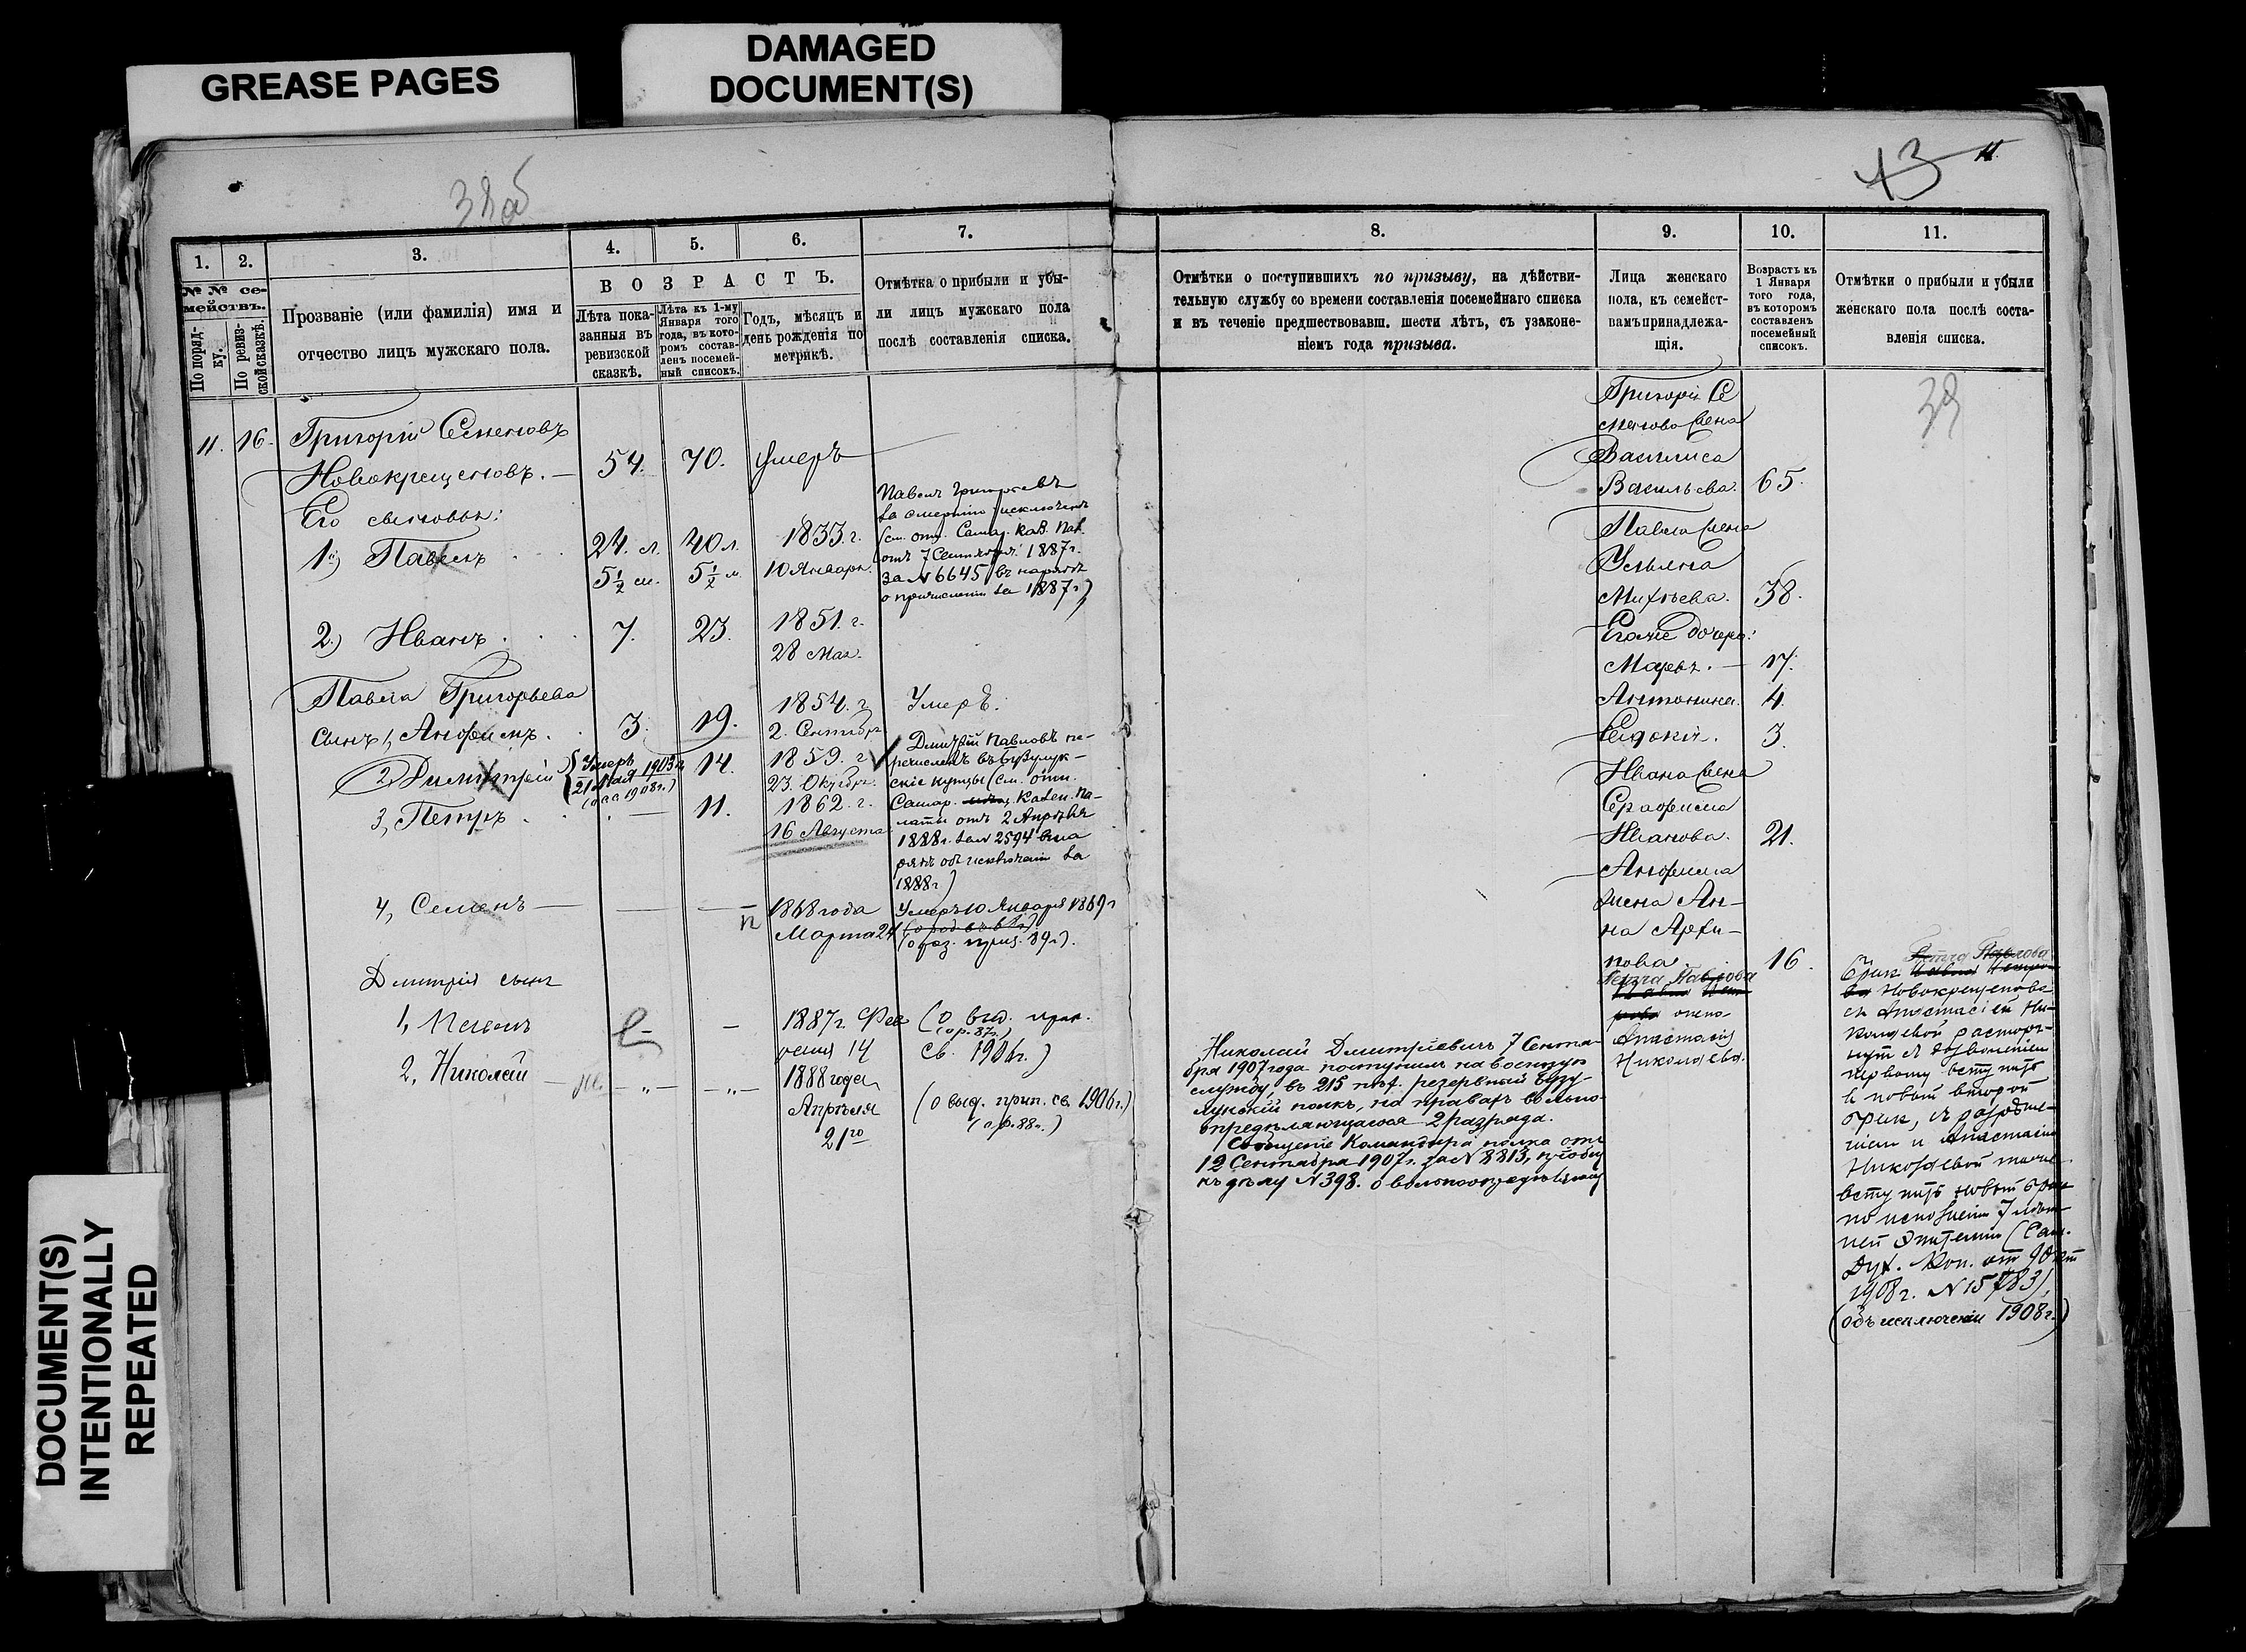 GREASE PAGES
DAMAGED
DOCUMENT(S)
DOCUMENT(S)
INTENTIONALLY
REPEATED
38об
1.
2.
3.
4.
5.
6.
7.
№ № се-
мействъ.
По поряд-
ку.
По ревиз-
ской сказкѣ.
Прозваніе (или фамилія) имя и
отчество лицъ мужскаго пола.
ВОЗРАСТЪ.
Лѣта пока-
занныя въ
ревизской
сказкѣ.
Лѣта къ 1-му
Января того
года, въ кото-
ромъ состав-
ленъ посемей-
ный списокъ.
Годъ, мѣсяцъ и
день рожденія по
метрикѣ.
Отмѣтка о прибыли и убы-
ли лицъ мужскаго пола
послѣ составленія списка.
11. 16. Григорій Семеновъ
Новокрещеновъ. 54. 70. умеръ
Его сыновья:
1й) Павелъ 24. л. 40 л. 1833. г.
5½ м. 5½ м. 10 Января.
Павелъ Григорьевъ
за смертію исключенъ
(см. отн. Самар. Каз. Пал.
отъ 7 Сентября 1887 г.
за № 6645 въ нарядѣ
о причисленіи за 1887 г)
2.) Иванъ 7. 23. 1851. г.
28 Мая.
Павла Григорьева
сынъ 1, Анфимъ 3. 19. 1854. г.
2. Сентября
Умеръ.
2 Димитрій
Умеръ
21 Мая 1903 г.
14. 1859. г.
23. Октября.
Дмитрій Павловъ пе-
речисленъ въ Бузулук-
скіе купцы (см. отн.
Самар. Казен. Па-
латы отъ 2 Апрѣля
1888 г. за № 2594 въ на
рядѣ объ исключеніи за
1888 г)
3, Петръ 11. 1862. г.
16 Августа
4, Семенъ
п
1868 года
Марта 24
Умеръ 10 Января 1869 г
Дмитрія сына
1, 1887 г. Фев
раля 14
(о выд. прип.
(о р. 87 г.)
св. 1906 г.)
2, Николай 1888 года
Апрѣля
21го
(о выд. прип. св. 1906 г.)
(о р. 88 г.)
13
11.
8.
9.
10.
11.
Отмѣтки о поступившихъ по призыву, на дѣйстви-
тельную службу со времени составленія посемейнаго списка
и въ теченіе предшествовавш. шести лѣтъ, съ узаконе-
ніемъ года призыва.
Лица женскаго
пола, къ семейст-
вамъ принадлежа-
щія.
Возрастъ къ
1 Января
того года,
въ которомъ
составленъ
посемейный
списокъ.
Отмѣтки о прибыли и убыли
женскаго пола послѣ соста-
вленія списка.
39
Григорія Се
менова жена
Василиса
Васильева. 65.
Павла жена
Ульяна
Михѣева. 38.
Его же дочери:
Марья. 17.
Антонина. 4.
Евдокія. 3.
Ивана жена
Серафима
Иванова. 21.
Анфима
жена Ан-
на Архи-
пова. 16.
Петра Павлова
жена
Анастасія
Николаева.
Николай Дмитріевичъ 7 Сентя-
бря 1907 года поступилъ на военную
службу, въ 215 пѣх. резервный Бузу-
лукскій полкъ, на правахъ вольно-
опредѣляющагося 2 разряда.
Сообщеніе Командира полка отъ
12 Сентября 1907 г. за № 8813,
къ дѣлу № 398. о вольноопредѣляющ
Петра Павлова
Бракъ
Новокрещенова
съ Анастасіей Ни-
колаевой расторг-
нутъ съ дозволеніемъ
первому вступить
в новый второй
бракъ, съ разрѣше-
ніем и Анастасіи
Николаевой также
вступить новый брак
по исполненіи 7 лѣт-
ней эпитеміи (Сам.
Дух. Кон. от 9 Окт
1908 г. № 15783),
(объ исключеніи 1908 г.)